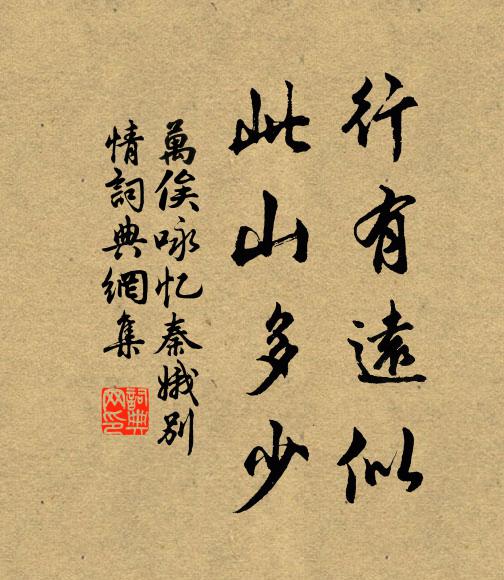 行有遠似
此山多少
萬俟咏忆秦娥别
情詞典網集
詞典网印